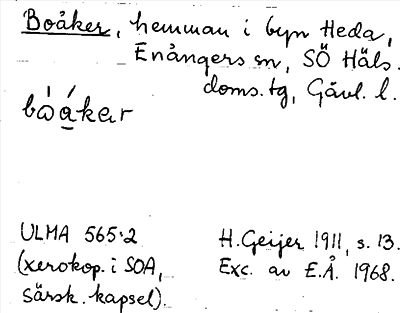 Boåker, hemman i byn Heda,
Enångers sn, SÖ Häls.
doms. tg, Gävl. l.
bòá̲ker
ULMA 565:2
(xerokop. i SOA,
särsk. kapsel).
H. Geijer 1911, s. 13.
Exc. av E.Å. 1968.